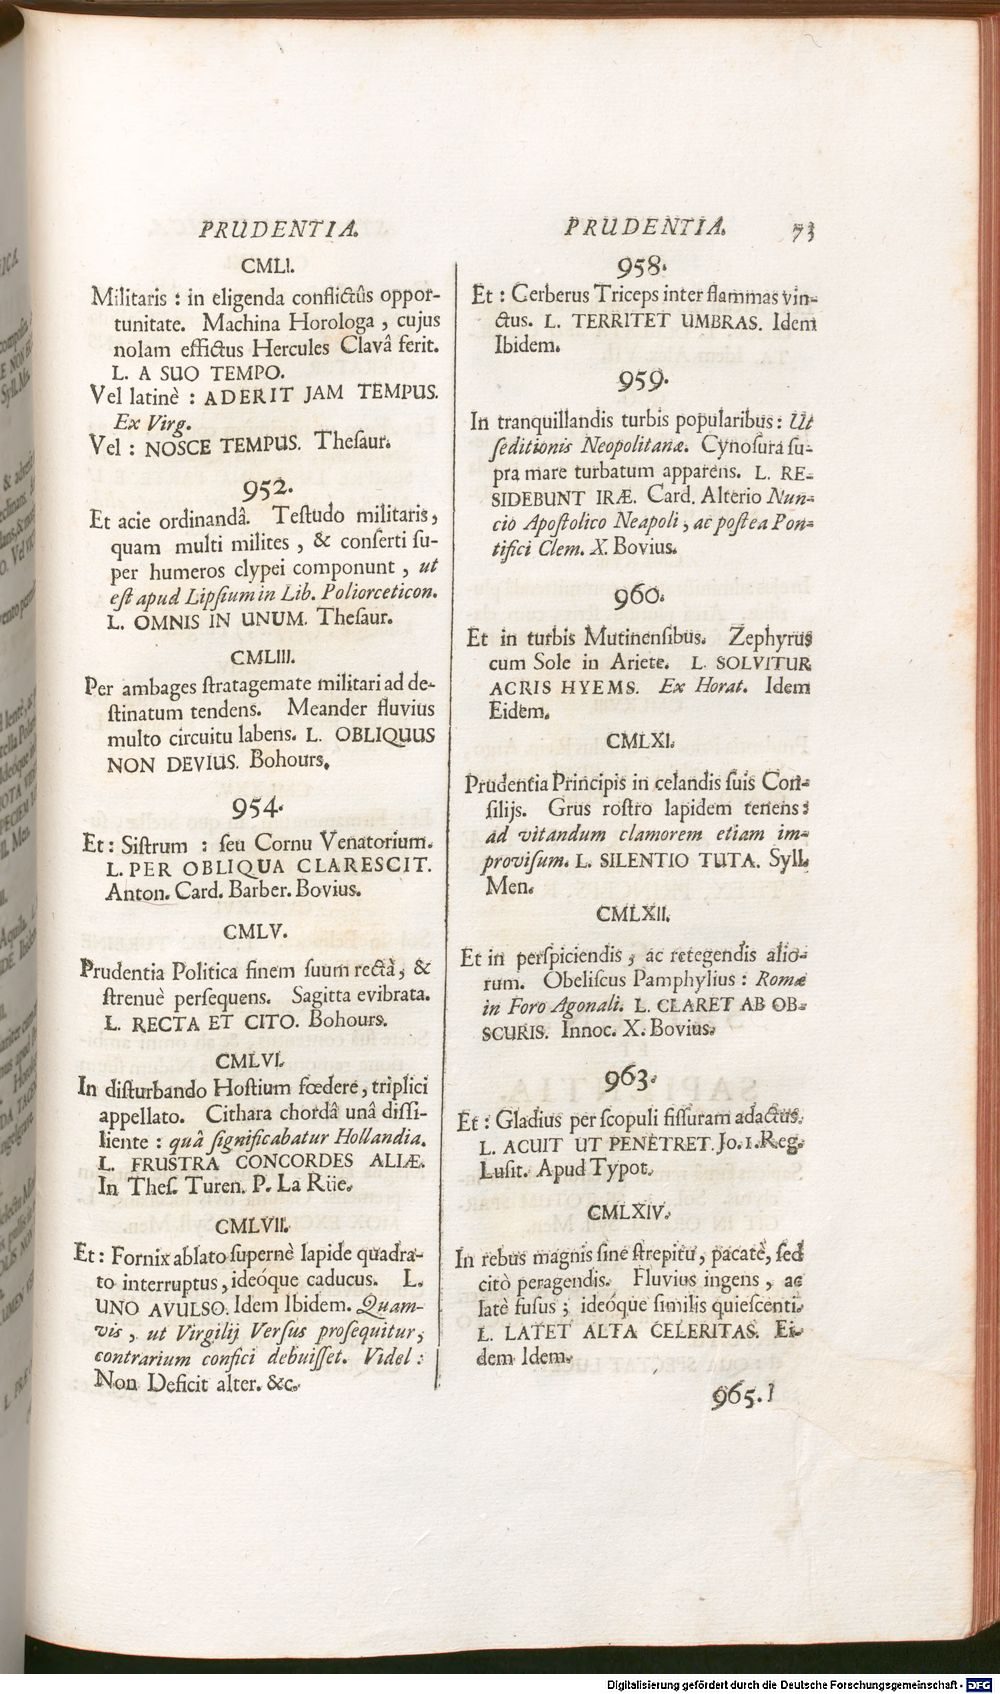 PRUDENTIA.
CMLI.
Militaris : in eligenda conflictûs oppor-
tunitate. Machina Horologa , cujus
nolam effictus Hercules Clavâ ferit.
L. A SUO TEMPO.
Vel latinè : ADERIT JAM TEMPUS.
Ex Virg.
Vel : NOSCE TEMPUS. Thesaur.
952.
Et acie ordinandâ. Testudo militaris,
quam multi milites , & conserti su-
per humeros clypei componunt , ut
est apud Lipsium in Lib. Poliorceticon.
L. OMNIS IN UNUM. Thesaur.
CMLIII.
Per ambages stratagemate militari ad de-
stinatum tendens. Meander fluvius
multo circuitu labens. L. OBLIQUUS
NON DEVIUS. Bohours.
954.
Et : Sistrum : seu Cornu Venatorium.
L. PER OBLIQUA CLARESCIT.
Anton. Card. Barber. Bovius.
CMLV.
Prudentia Politica finem suum rectà, &
strenuè persequens. Sagitta evibrata.
L. RECTA ET CITO. Bohours.
CMLVI.
In disturbando Hostium fœdere, triplici
appellato. Cithara chordâ unâ dissi-
liente : quâ significabatur Hollandia.
L. FRUSTRA CONCORDES ALIÆ.
In Thes. Turen. P. La Rüe.
CMLVII.
Et : Fornix ablato supernè lapide quadra-
to interruptus, ideóque caducus. L.
UNO AVULSO. Idem Ibidem. Quam-
vis , ut Virgilij Versus prosequitur,
contrarium confici debuisset. Videl :
Non Deficit alter. &c.
PRUDENTIA. 73
958.
Et : Cerberus Triceps inter flammas vin-
ctus. L. TERRITET UMBRAS. Idem
Ibidem.
959.
In tranquillandis turbis popularibus : Ut
seditionis Neopolitanæ. Cynosura su-
pra mare turbatum apparens. L. RE-
SIDEBUNT IRÆ. Card. Alterio Nun-
cio Apostolico Neapoli , ac postea Pon-
tifici Clem. X. Bovius.
960.
Et in turbis Mutinensibus. Zephyrus
cum Sole in Ariete. L. SOLVITUR
ACRIS HYEMS. Ex Horat. Idem
Eidem.
CMLXI.
Prudentia Principis in celandis suis Con-
silijs. Grus rostro lapidem tenens :
ad vitandum clamorem etiam im-
provisum. L. SILENTIO TUTA. Syll.
Men.
CMLXII.
Et in perspiciendis , ac retegendis alio-
rum. Obeliscus Pamphylius : Romæ
in Foro Agonali. L. CLARET AB OB-
SCURIS. Innoc. X. Bovius.
963.
Et : Gladius per scopuli fissuram adactus.
L. ACUIT UT PENETRET. Jo. I. Reg.
Lusit. Apud Typot.
CMLXIV.
In rebus magnis sine strepitu, pacatè, sed
citò peragendis. Fluvius ingens , ac
latè fusus ; ideóque similis quiescenti.
L. LATET ALTA CELERITAS. Ei-
dem Idem.
965. I
Digitalisierung gefördert durch die Deutsche Forschungsgemeinschaft - DFG